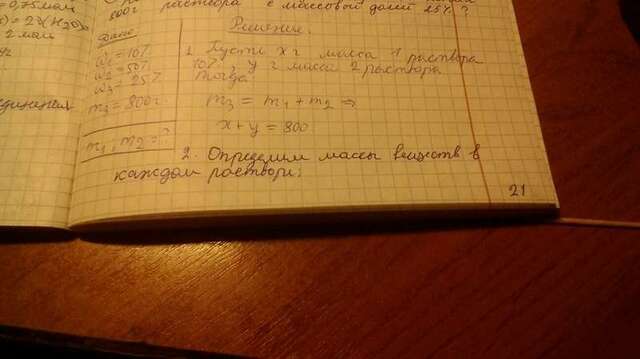 = 0,75 моль
800г раствора с массовой долей 25% ?
Дано
ω₁ = 10%
ω₂ = 50%
ω₃ = 25%
m₃ = 800г
m₁, m₂ = ?
Решение:
1. Пусть x г масса 1 раствора
10%, y г масса 2 раствора
тогда
m₃ = m₁ + m₂ ⇒
x + y = 800
2. Определим массы веществ в
каждом растворе:
21